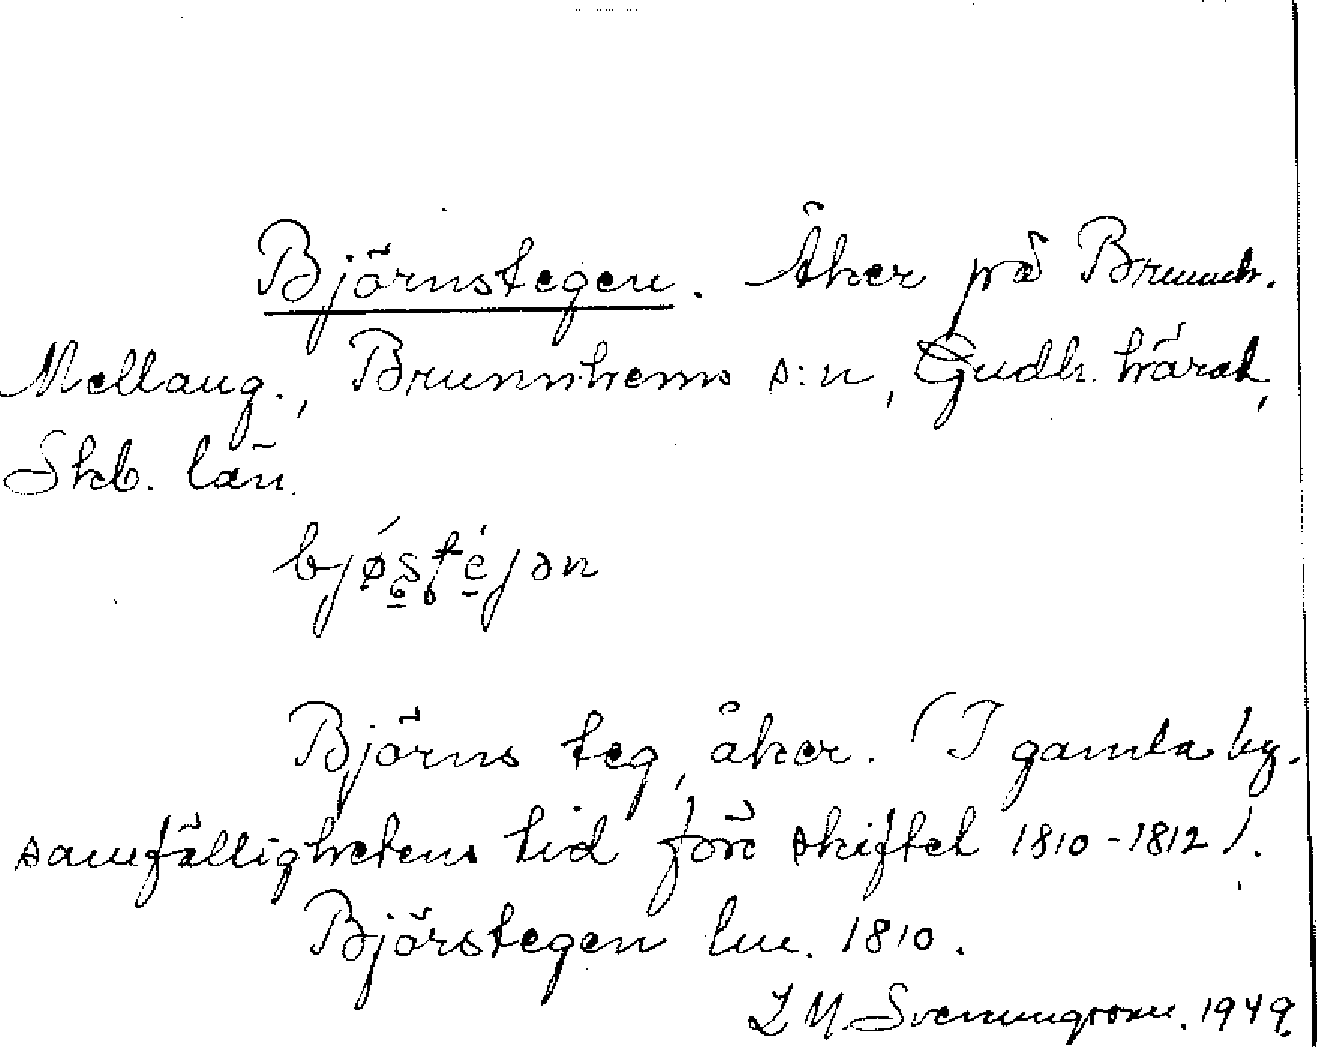 Björnstegen. Åker på Brunnh.
Mellang., Brunnhems s:n, Gudh. härad,
Skb. län.
bjøstejən
Björns teg, åker. (I gamla by-
samfällighetens tid före skiftet 1810-1812).
Björstegen lm. 1810.
Svenungsson. 1949